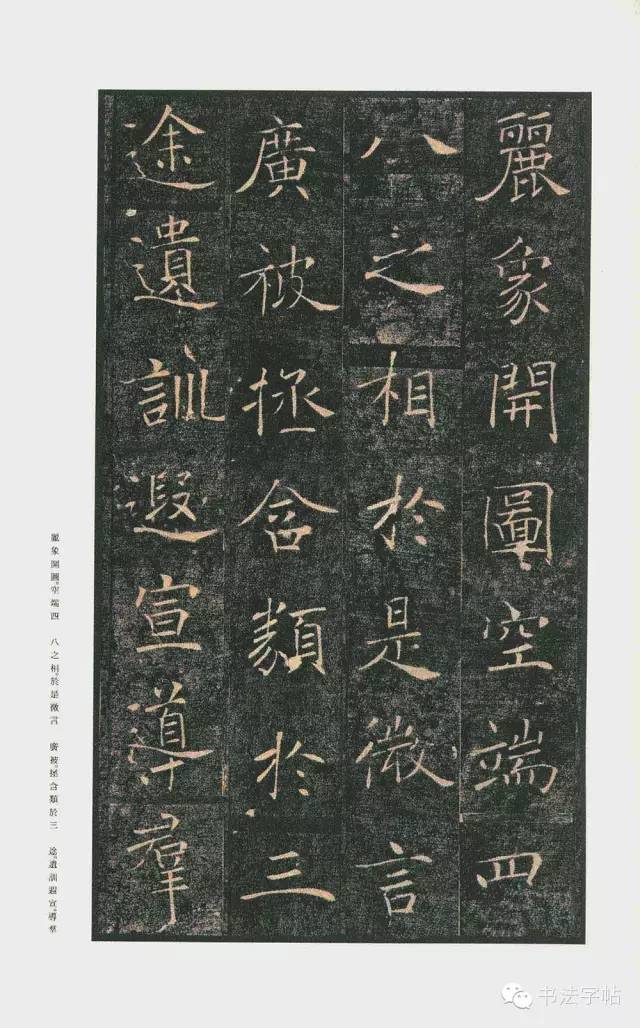 麗象開圖空端四
八之相於是微言
廣被拯含類於三
途遺訓遐宣導群
麗象開圖。空端四 八之相。於是微言 廣被。拯含類於三 途。遺訓遐宣。導羣
书法字帖